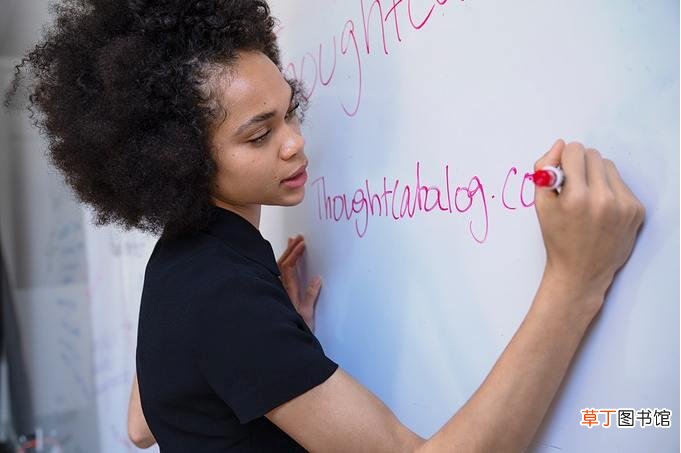 ThoughtCatalog.co
草丁图书馆